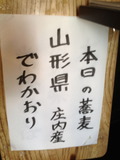 本日の蕎麦
山形県 庄内産
でわかおり